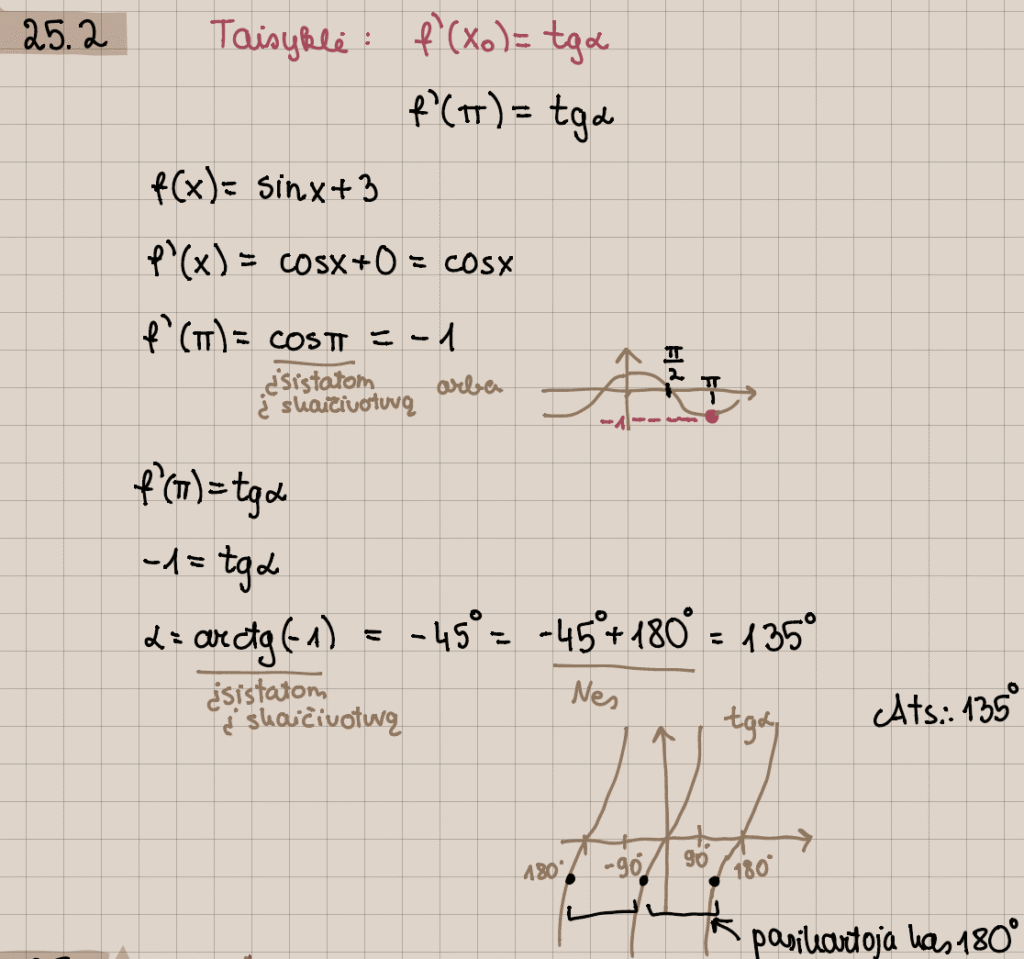 25.2 Taisyklė: f`(x₀)= tgα
f`(π)= tgα
f(x)= sinx+3
f`(x)= cosx+0 = cosx
f`(π)= cosπ = -1
įsistatom arba
į skaičiuotuvą
π/2 π
-1
f`(π)=tgα
-1= tgα
α= arctg(-1) = -45° = -45°+180° = 135°
įsistatom Nes
į skaičiuotuvą tgα
Ats.: 135°
180° -90° 90° 180°
pasikartoja kas 180°